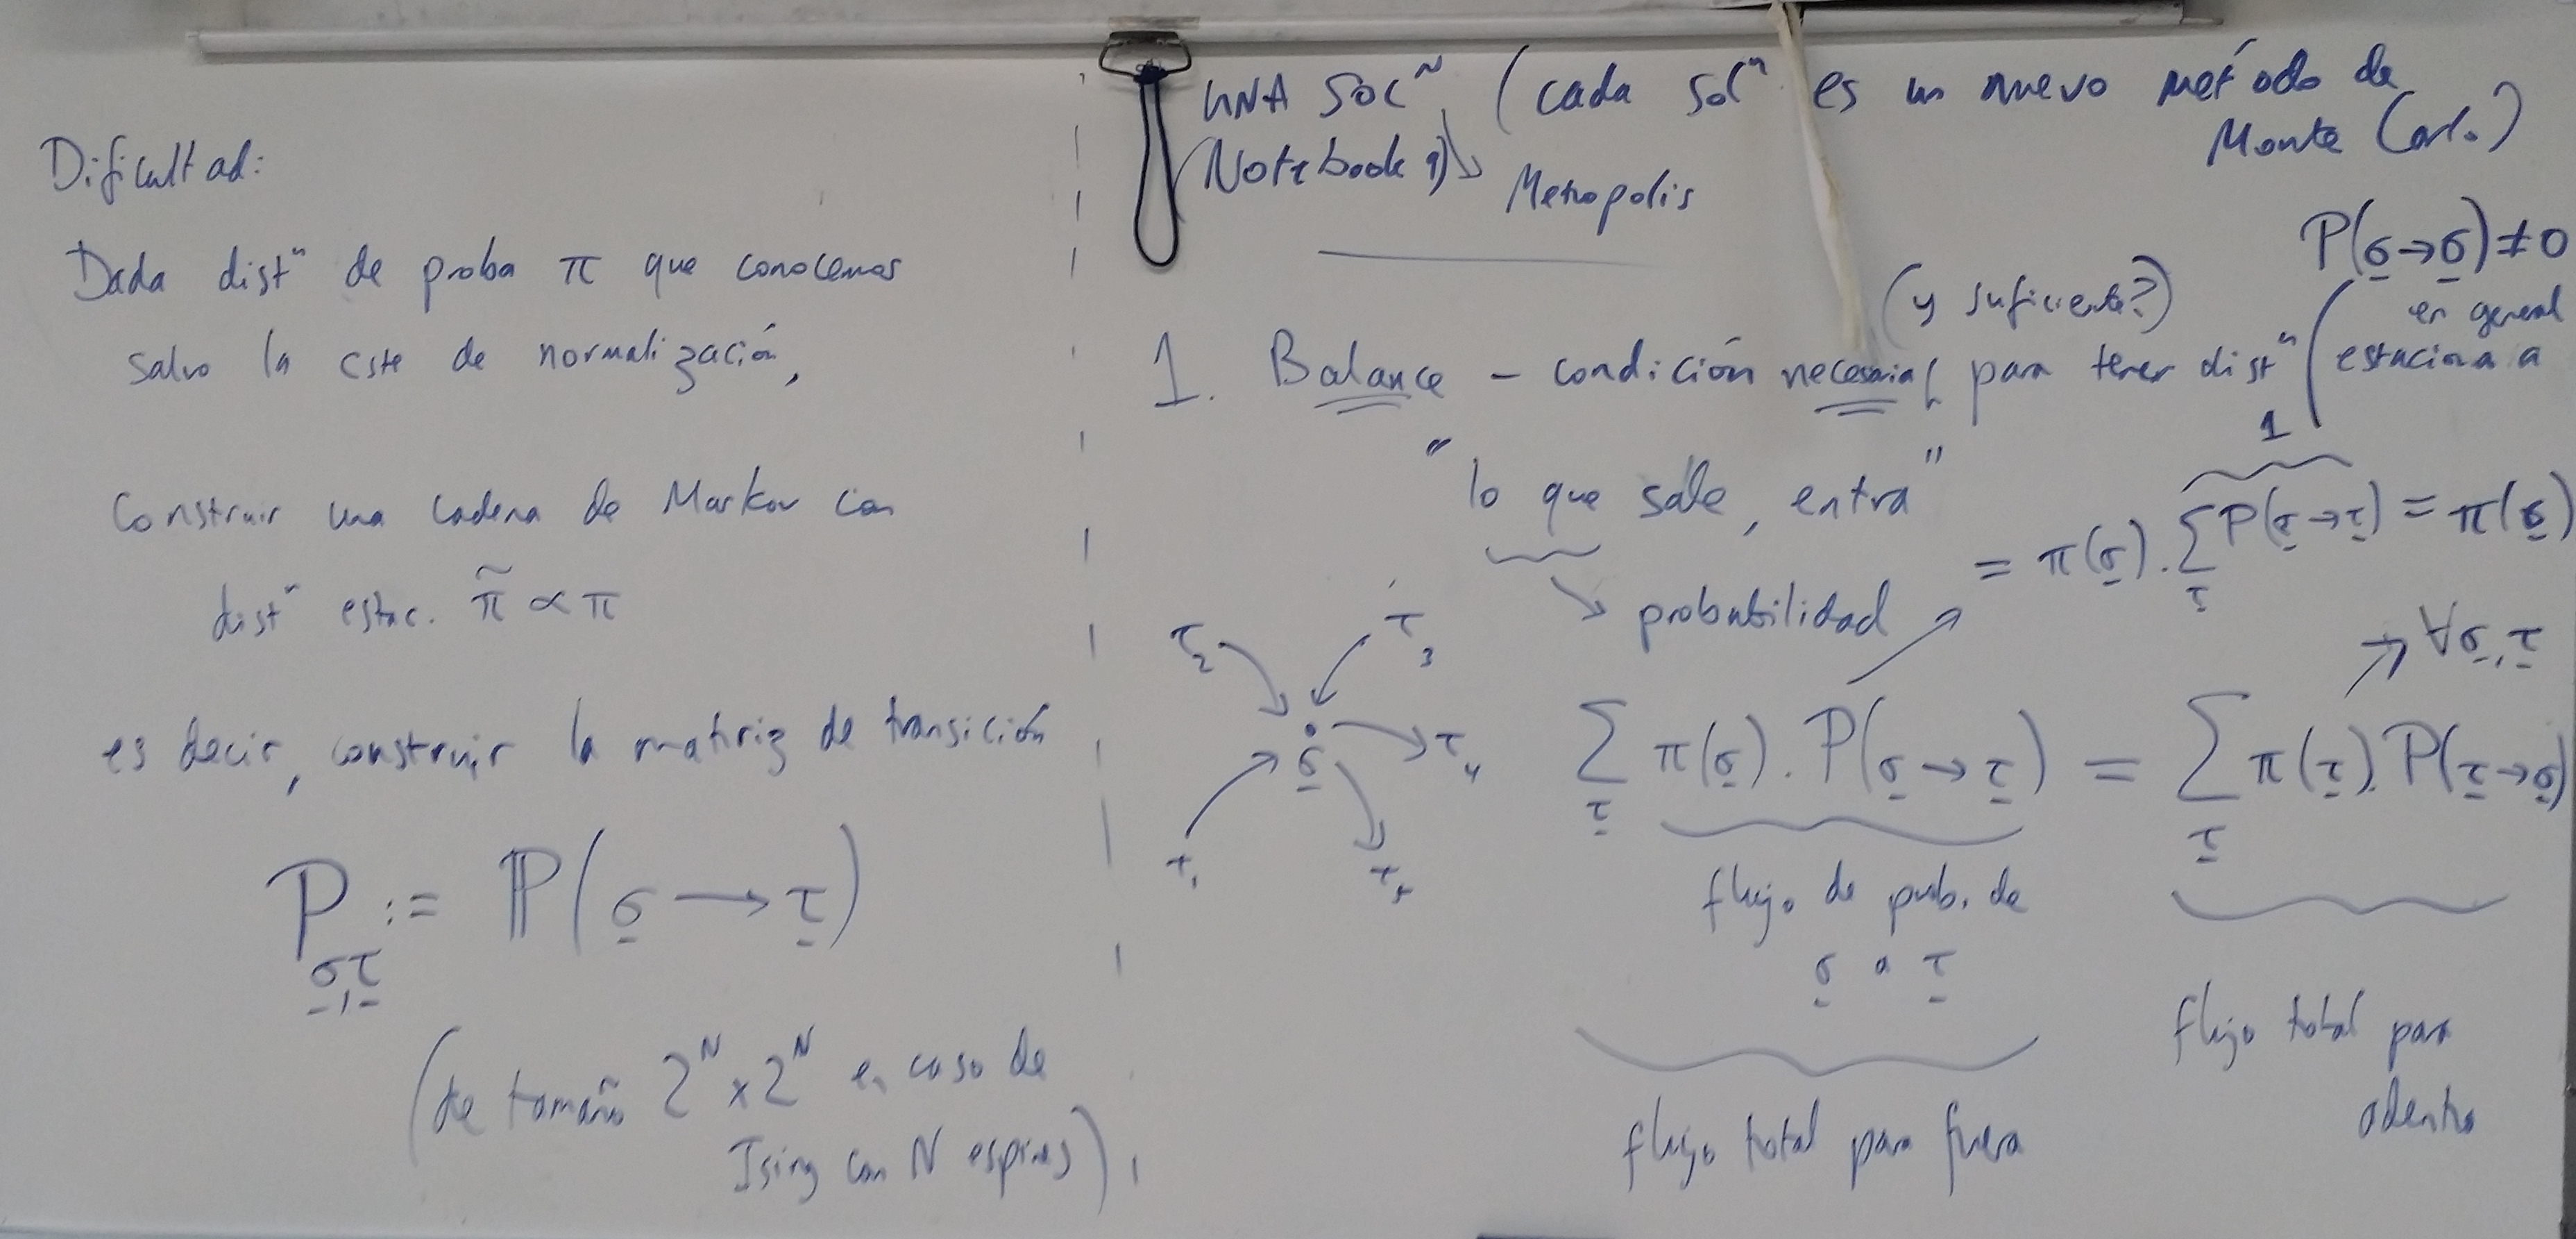 Dificultad:
Dada distⁿ de proba π que conocemos
salvo la cste de normalización,
construir una cadena de Markov con
distⁿ estac. π̃ ∝ π
es decir, construir la matriz de transición
P_{σ,τ} := ℙ(σ → τ)
(de tamaño 2^N × 2^N en caso de
Ising con N espines)
UNA SOLⁿ (cada solⁿ es un nuevo método de
Monte Carlo)
(Notebook 9) ↘ Metropolis
P(σ→σ) ≠ 0
en general
(y suficiente?)
1. Balance – condición necesaria para tener distⁿ estacionaria
"lo que sale, entra"
↘ probabilidad
1
= π(σ) · Σ_τ P(σ→τ) = π(σ)
→ ∀σ, τ
τ₂ τ₃
σ τ₄
τ₁ τ₅
Σ_τ π(σ) · P(σ→τ) = Σ_τ π(τ) · P(τ→σ)
flujo de prob. de
σ a τ
flujo total para
adentro
flujo total para fuera